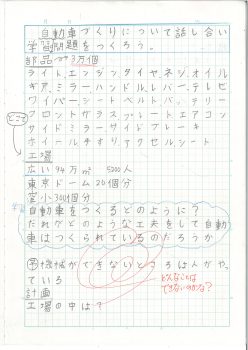 自動車づくりについて話し合い
学習問題をつくろう。
部品 3万個
ライト エンジン タイヤ ネジ オイル
ギア ミラー ハンドル レバー テレビ
ワイパー シート ベルト バッテリー
フロントガラス プレート エアコン
サイドミラー サイドブレーキ
ホイール キすり アクセル シート
どこで
工場
広い 94万㎡ 5200人
東京ドーム 20個分
小 30個分
自動車をつくるどのように?
だれがどのような工夫をして自動
車はつくられているのだろうか
予 機械ができないところは人がや
ている
どんなことは
できないのかな?
計画
工場の中は?